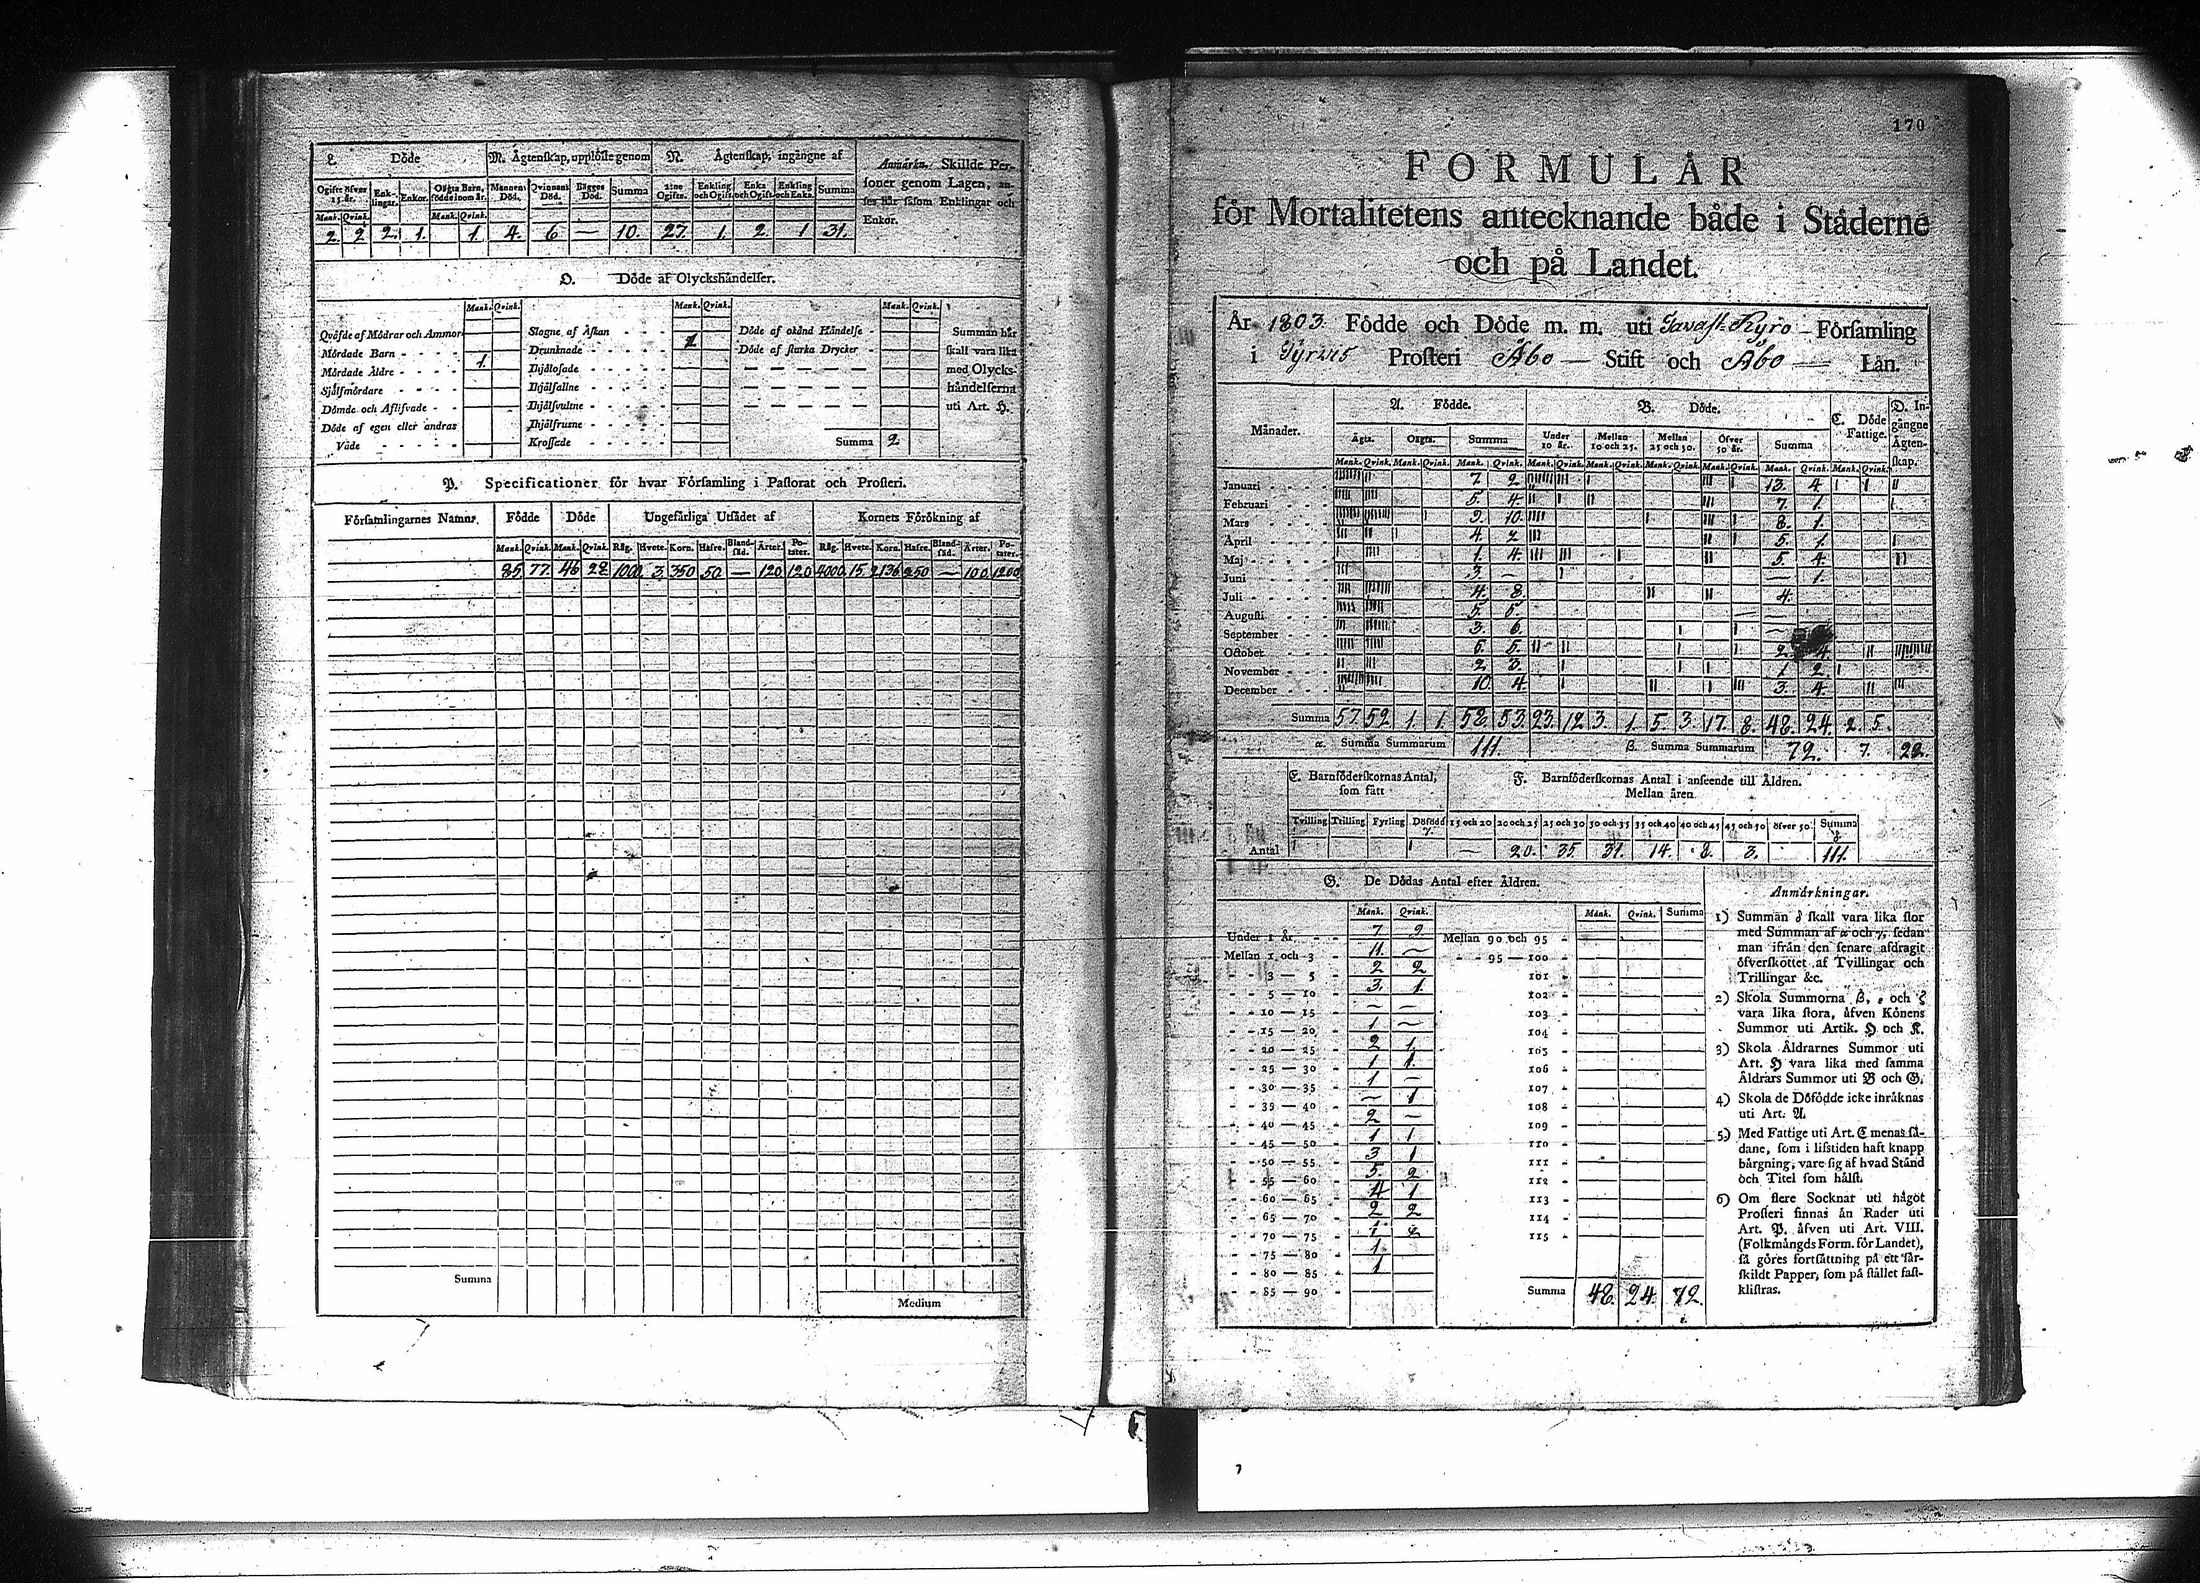 L. Döde
M. Ägtenskap, upplöste genom
N. Ägtenskap, ingångne af
Anmärkn. Skillde Personer genom Lagen, anses här såsom Enklingar och Enkor.
Ogifte öfver 15 år. Enklingar. Enkor. Oägta Barn, födde inom år. Mannens Död. Qvinnans Död. Bägges Död. Summa 2:ne Ogifte. Enkling och Ogift. Enka och Ogift. Enkling och Enka. Summa
Mank. Qvink. Mank. Qvink.
2. 2 2. 1. 1. 4. 6 — 10. 27. 1. 2. 1 31.
O. Döde af Olyckshändelser.
Mank. Qvink. Mank. Qvink. Mank. Qvink.
Qväfde af Mödrar och Ammor
Mördade Barn - - - - 1.
Mördade Äldre - - - -
Sjålfmördare - - - -
Dömde och Aflifvade - -
Döde af egen eller andras
Våde - - - - -
Slagne af Åskan - - -
Drunknade - - - -
Ihjälosade - - - - -
Ihjälfallne - - - - -
Ihjälsvultne - - - - -
Ihjälfrusne - - - - -
Krossade - - - - -
Döde af okänd Händelse -
Döde af starka Drycker -
Summa 2
Summan här
skall vara lika
med Olycks-
händelserna
uti Art. H.
P. Specificationer för hvar Församling i Pastorat och Prosteri.
Församlingarnes Namn. Födde Döde Ungefärliga Utsädet af Kornets Förökning af
Mank. Qvink. Mank. Qvink. Råg. Hvete. Korn. Hafre. Blandsäd. Ärter. Potater. Råg. Hvete. Korn. Hafre. Blandsäd. Ärter. Potater.
85. 77. 46 28 1000. 3. 350 50 — 120 120 4000. 15. 2136 250 — 100 1200
Summa
Medium
170
FORMULÄR
för Mortalitetens antecknande både i Städerne
och på Landet.
År 1803. Födde och Döde m. m. uti Tavast-Kyro Församling
i Tyrvis Prosteri Åbo — Stift och Åbo — Län.
Månader. A. Födde. B. Döde. C. Döde Fattige. D. Ingångne Ägtenskap.
Ägta. Oägta. Summa Under 10 år. Mellan 10 och 25. Mellan 25 och 50. Öfver 50 år. Summa
Mank. Qvink. Mank. Qvink. Mank. Qvink. Mank. Qvink. Mank. Qvink. Mank. Qvink. Mank. Qvink. Mank. Qvink. Mank. Qvink.
Januari - - - - 7. 2 13. 4.
Februari - - - - 5. 4 7. 1.
Mars - - - 9. 10. 8. 1.
April - - - - 4 2 5. 1.
Maj - - - - 1. 4. 5. 4.
Junii - - - - 3. — — 1.
Julii - - - - 4. 8. 4.
Augusti - - - - 5. 5. —
September - - - 3. 6. —
October - - - 5. 5. 2. 4.
November - - - 2 3. 1 2.
December - - - 10. 4. 3. 4.
Summa 57. 52. 1. 1. 58. 53. 23. 12. 3. 1. 5. 3. 17. 8. 48. 24. 2. 5.
α. Summa Summarum 111. β. Summa Summarum 72. 7. 22.
E. Barnföderskornas Antal, som fått
F. Barnföderskornas Antal i anseende till Åldren.
Mellan åren
Tvilling Trilling Fyrling Dödfödd γ. 15 och 20 20 och 25 25 och 30 30 och 35 35 och 40 40 och 45 45 och 50 öfver 50 Summa δ
Antal 1 1 — 20. 35. 31. 14. 8. 3. 111.
G. De Dödas Antal efter Åldren.
Mank. Qvink. Mank. Qvink. Summa
Under 1 År - - 7 9
Mellan 1 och 3 - 11. —
- - 3 — 5 - 2 2
- - 5 — 10 - 3. 1.
- - 10 — 15 - — —
- - 15 — 20 - 1 —
- - 20 — 25 - 2 1.
- - 25 — 30 - 1 1.
- - 30 — 35 - 1 —
- - 35 — 40 - — 1
- - 40 — 45 - 2 —
- - 45 — 50 - 1 1
- - 50 — 55 - 3 1
- - 55 — 60 - 5. 2
- - 60 — 65 - 4 1
- - 65 — 70 - 2 2
- - 70 — 75 - 1 2
- - 75 — 80 - 1.
- - 80 — 85 - 1
- - 85 — 90 -
Mellan 90 och 95 -
- - 95 — 100 -
101 -
102 -
103 -
104 -
105 -
106 -
107 -
108 -
109 -
110 -
111 -
112 -
113 -
114 -
115 -
Summa 48. 24. 72.
Anmärkningar.
1) Summan δ skall vara lika stor
med Summan af α och γ, sedan
man ifrån den senare afdragit
öfverskottet af Tvillingar och
Trillingar &c.
2) Skola Summorna β, ε och ζ
vara lika stora, äfven Könens
Summor uti Artik. H och K.
3) Skola Åldrarnes Summor uti
Art. H vara lika med samma
Åldrars Summor uti B och G.
4) Skola de Döfödde icke inräknas
uti Art. A.
5) Med Fattige uti Art. C menas så-
dane, som i lifstiden haft knapp
bärgning, vare sig af hvad Stånd
och Titel som hälst.
6) Om flere Socknar uti något
Prosteri finnas än Rader uti
Art. P. äfven uti Art. VIII.
(Folkmängds Form. för Landet),
så göres fortsättning på ett sär-
skildt Papper, som på stället fast-
klistras.